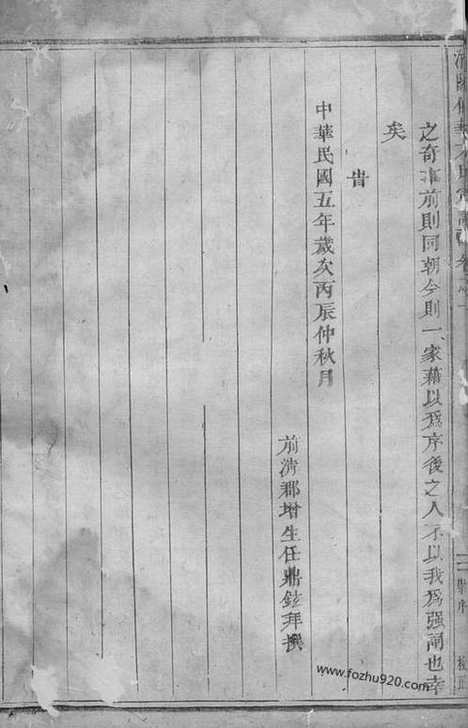 之奇事前則同朝今則一家藉以為序後之人不以我為强鬧也幸
矣
旹
中華民國五年歲次丙辰仲秋月
前清郡增生任鼎鉉拜撰
www.fozhu920.com